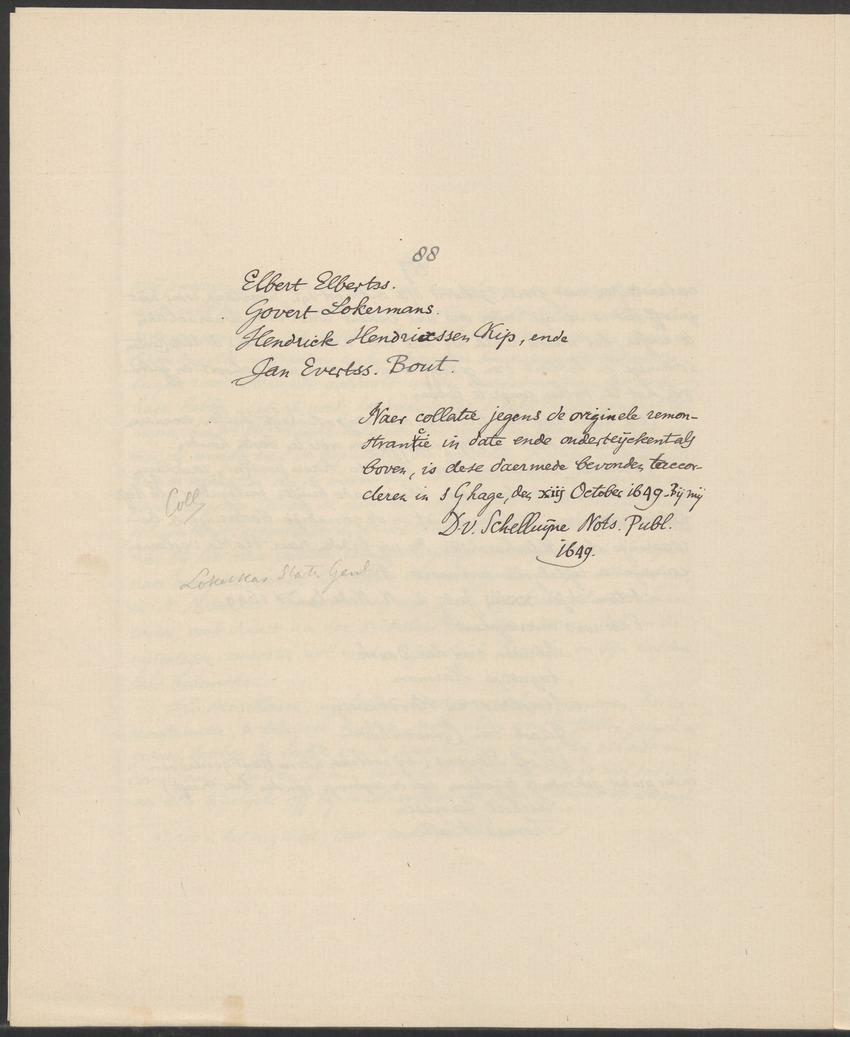 88
Elbert Elbertss.
Govert Lokermans.
Hendrick Hendricxssen Kip, ende
Jan Evertss. Bout.
Naer collatie jegens de originele remon-
strancie in date ende onderteijckent als
boven, is dese daermede bevonden taccor-
deren in s Ghage, den xiij October 1649. Bij mij
D. v. Schelluijne Nots. Publ.
1649.
Coll
Loketkas Stat. Genl